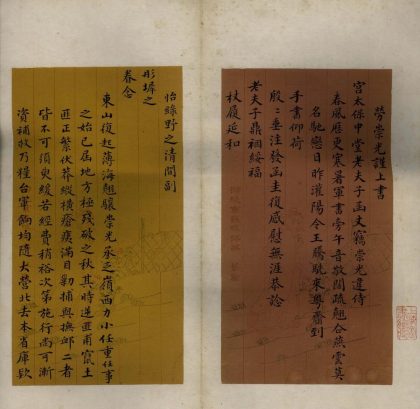 勞崇光謹上書
宮太保中堂老夫子函丈竊崇光違侍
春風歷更寒暑軍書旁午音敬闊疏翹企燕雲莫
名馳戀日昨灌陽令王騰駛來粵齎到
手書仰荷
殷殷垂注發函圭復感慰無涯恭諗
老夫子鼎裀綏福
杖履延和
怡綠野之清閒副
彤墀之
眷念
東山復起薄海翹驤崇光承乏嶺西力小任重任事
之始已屆地方極殘破之秋其時逆匪甫竄土
匪正繁伏莽縱橫瘡痍滿目勦捕與撫卹二者
皆不可須臾緩若經費稍裕次第施行尚可漸
資補救乃糧台軍餉均隨大營北去本省庫款